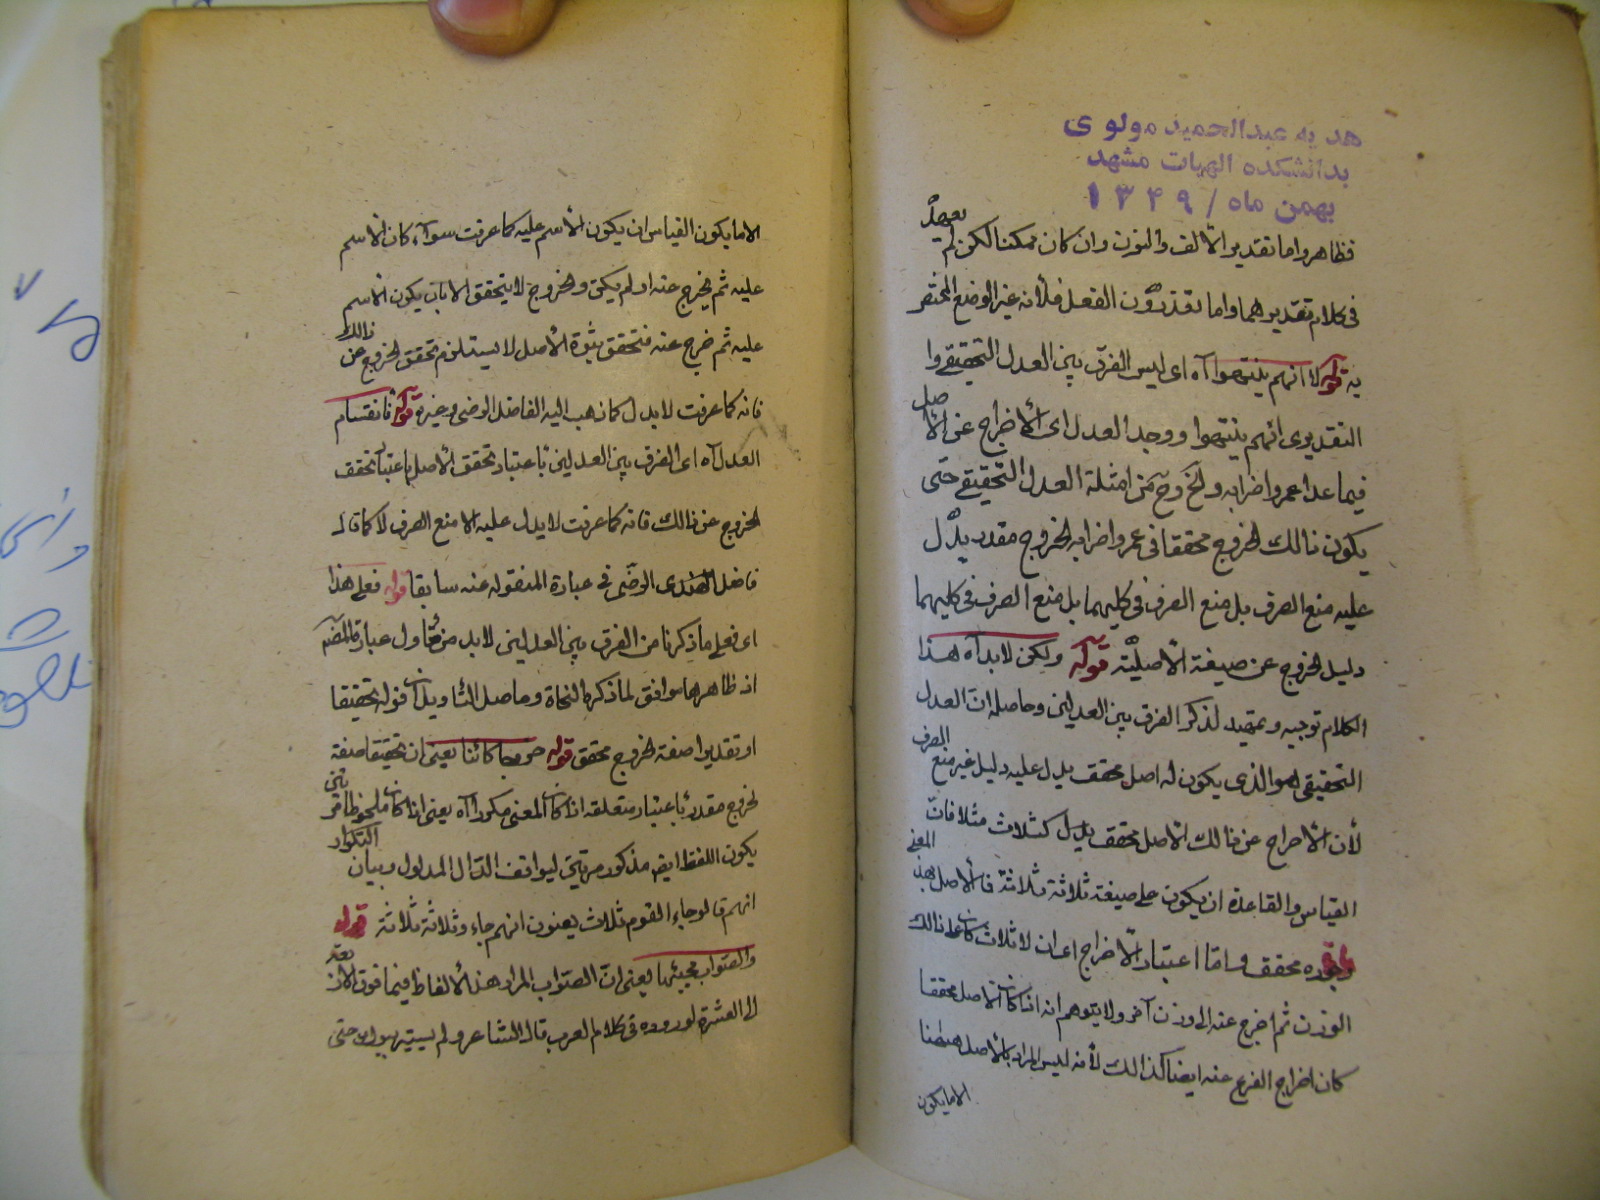 هدیه عبدالحمید مولوی
بدانشکده الهیات مشهد
بهمن ماه / ۱۳۴۹
فظاهر واما تقدیر الالف والنون وان کان ممکنا لکن لم یعهد
فی کلام تقدیرهما واما تقدر وزن الفعل فلأنه غیر الوضع المختصر
به قوله لا انهم ینتهوا آه ای لیس الفرق بین العدل التحقیقی وا
التقدیری انهم ینتهوا ووجد العدل ای الأخراج عن الأصل
فیما عدا عمر واضرابه والخروج من امثلة العدل التحقیقی حتی
یکون ذالک الخروج محققا فی عمر واضرابه الخروج مقدر یدل
علیه منع الصرف بل منع الصرف فی کلیهما بل منع الصرف فی کلیهما
دلیل الخروج عن صیغة الاصلیة قوله ولکن لابد آه هذا
الکلام توجیه وتمهید لذکر الفرق بین العدلین وحاصله ان العدل
التحقیقی هو الذی یکون له اصل محقق یدل علیه دلیل غیر منع الصرف
لأن الأخراج عن ذالک الاصل محقق یدل کثلاث مثلا فان
القیاس والقاعدة ان یکون علی صیغة ثلاثة ثلاثة فالأصل بهذ المعنی
وجوده محقق واما اعتبار الاخراج اعنی ان لا ثلاث کان علی ذالک
الوزن ثم اخرج عنه الی وزن آخر ولا یتوهم انه اذا کان الاصل محققا
کان اخراج الفرع عنه ایضا کذالک لأنه لیس المراد بالأصل هیهنا
الا ما یکون
الا ما یکون القیاس ان یکون الأسم علیه کما عرفت سوآء کان الاسم
علیه ثم یخرج عنه او لم یکن والخروج لا یتحقق الا بان یکون الاسم
علیه ثم خرج عنه فتحقق ثبوة الأصل لا یستلزم تحقق الخروج عن ذالک
فانه کما عرفت لا یدل کما ذهب الیه الفاضل الرضی وغیره قوله فانقسام
العدل آه ای الفرق بین العدلین باعتبار تحقق الأصل لا باعتبار تحقق
الخروج عن ذالک فانه کما عرفت لا یدل علیه الا منع الصرف لا کما قال
فاضل الهندی الرضی فی عبارة المنقوله عنه سابقا قوله فعلی هذا
ای فعلی ما ذکرنا من الفرق بین العدلین لابد من تأول عبارة المصنه
اذ ظاهرها موافق لما ذکره النحاة وحاصل التأویل ان قوله تحقیقا
او تقدیرا صفة الخروج محقق قوله خروجا کائنا یعنی ان تحقیقا صفة
الخروج مقدر باعتبار متعلقه اذا کان المعنی مکررا آه یعنی اذا کان ملحوظا مرتین
یکون اللفظ ایضه مذکور مرتین لیوافق الدال المدلول وبیان التکرار
انهم قالو جاء القوم ثلاث یعنون انهم جاء وثلاثة ثلاثة قوله
والصواب مجیئها یعنی ان الصواب المراد هذ الألفاظ فیما فوق الاربعة
الی العشرة لوروده فی کلام العرب قال الشاعر ولم یستر حتی